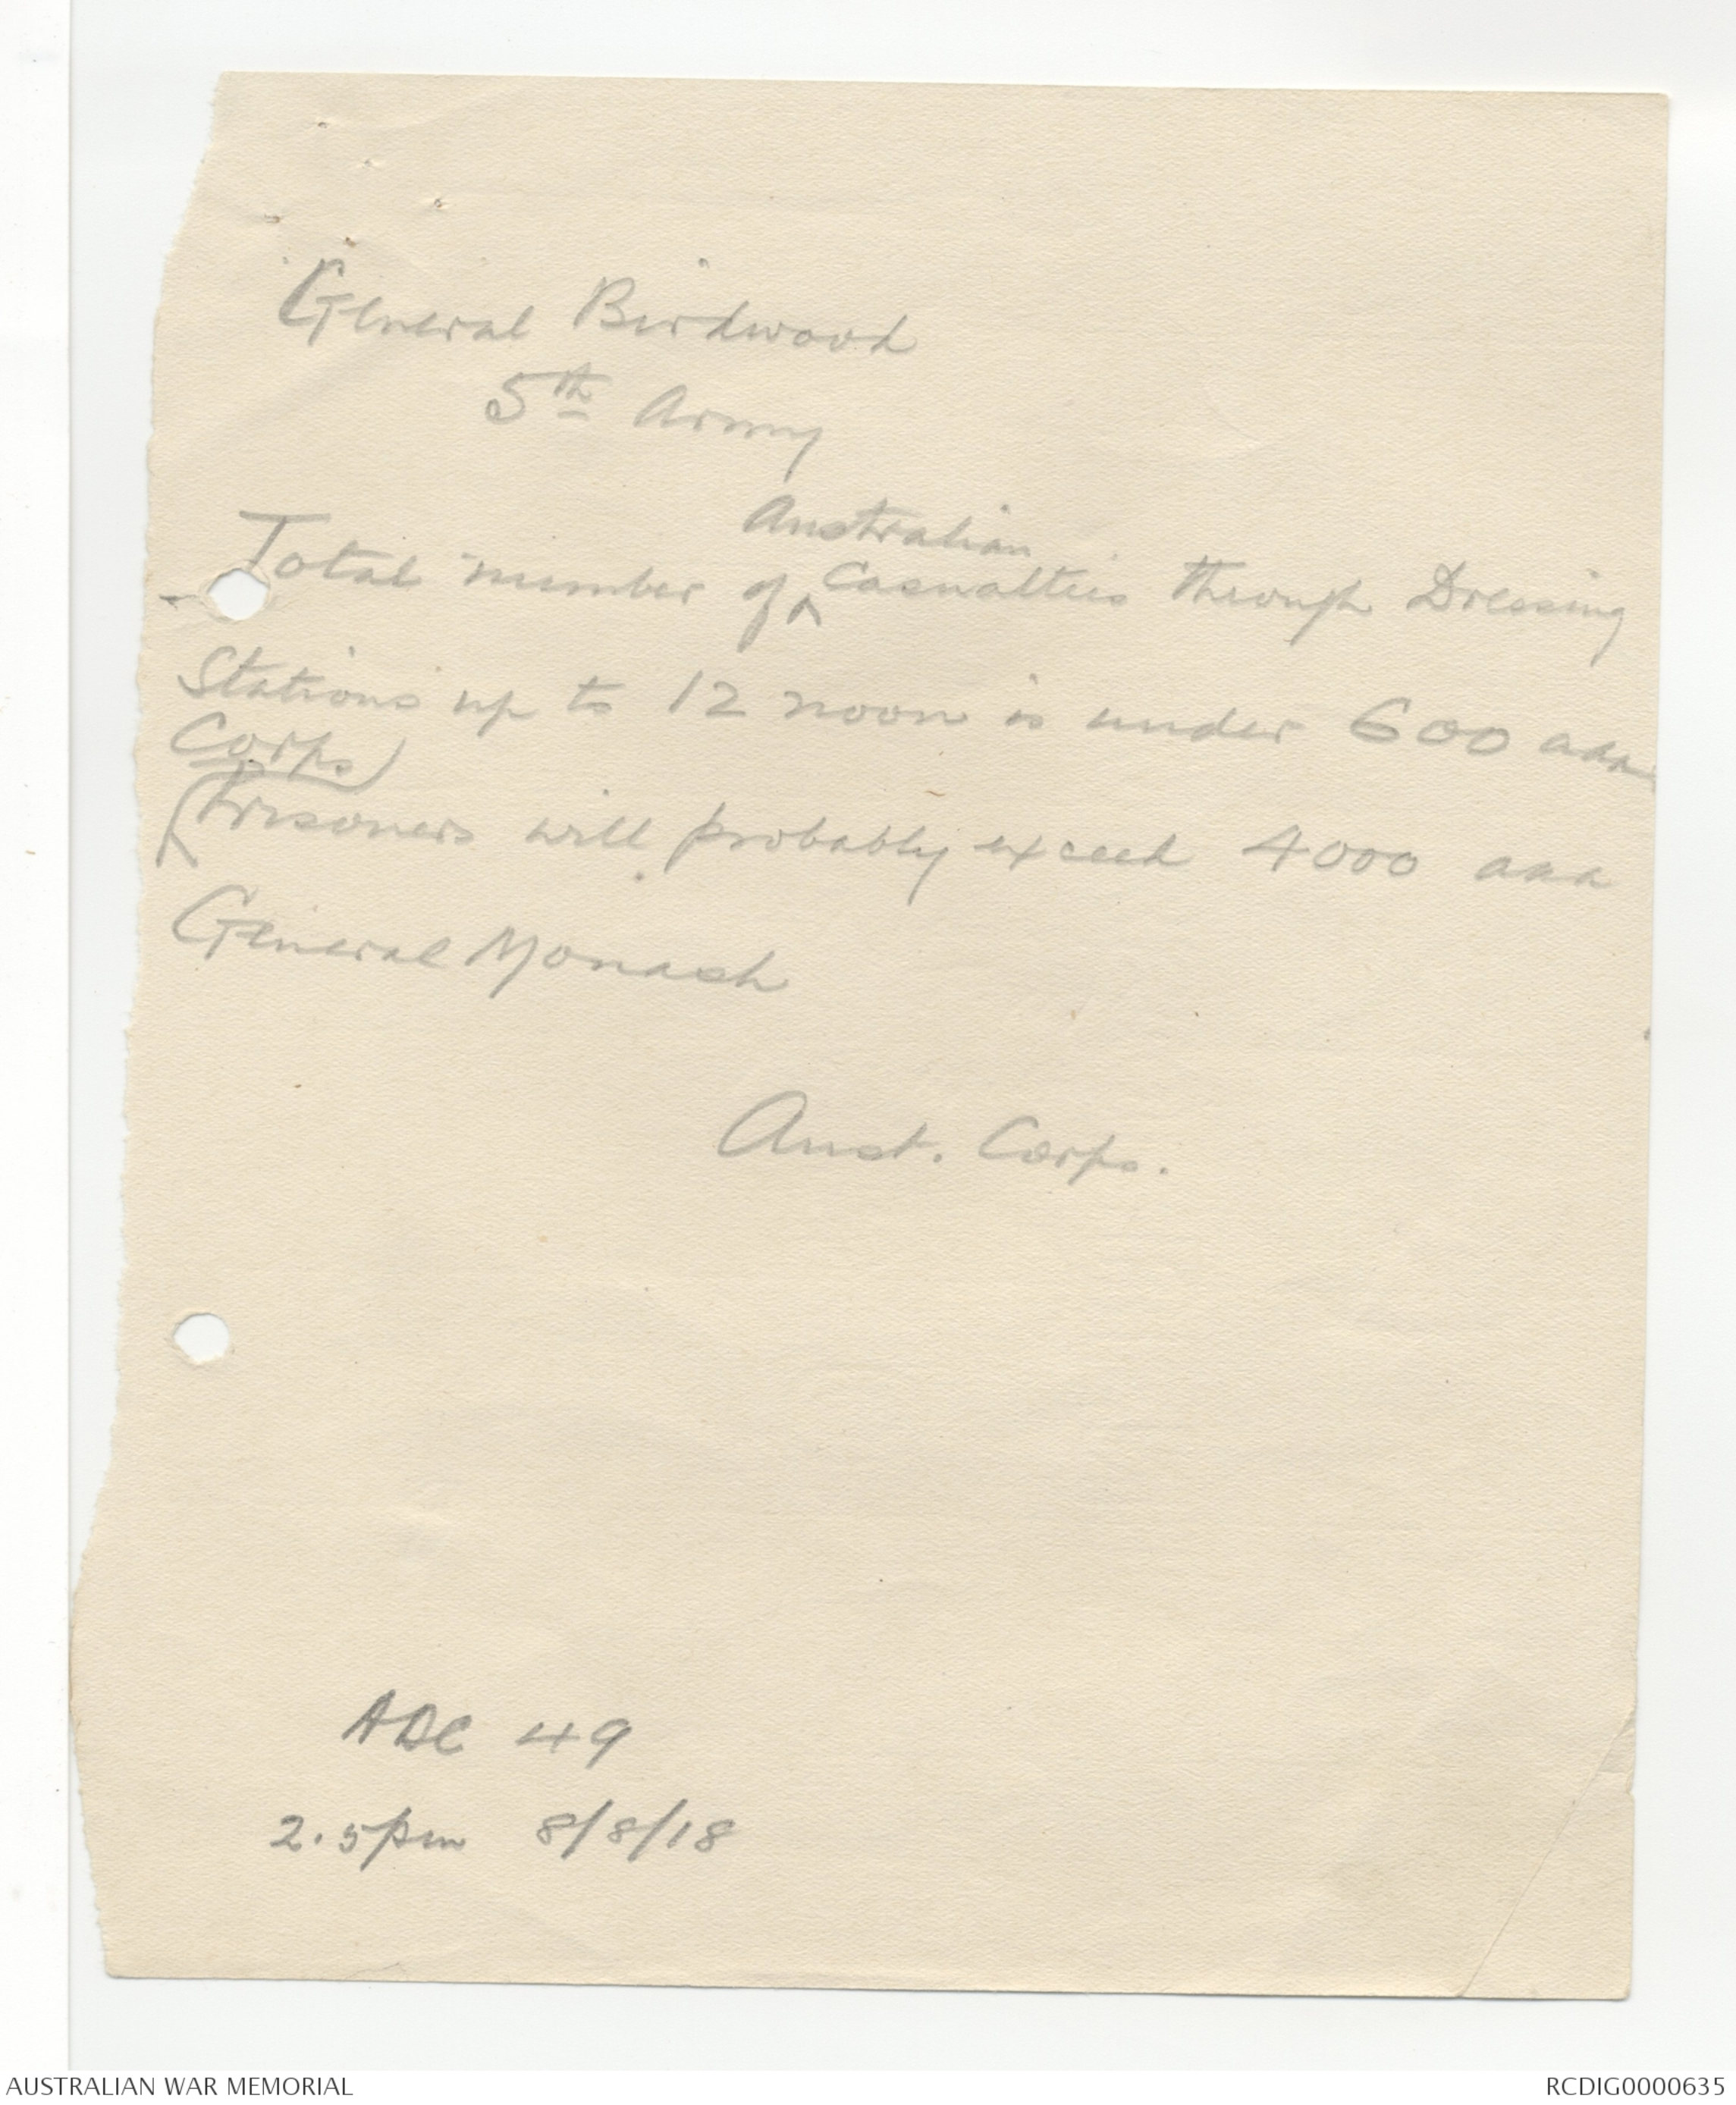 General Birdwood
5th Army
Australian
Total number of ^ Casualties through Dressing
Stations up to 12 noon is under 600 aaa
Corps
Prisoners will probably exceed 4000 aaa
General Monash
Aust. Corps.
ADC 49
2.5pm 8/8/18
AUSTRALIAN WAR MEMORIAL
RCDIG0000635